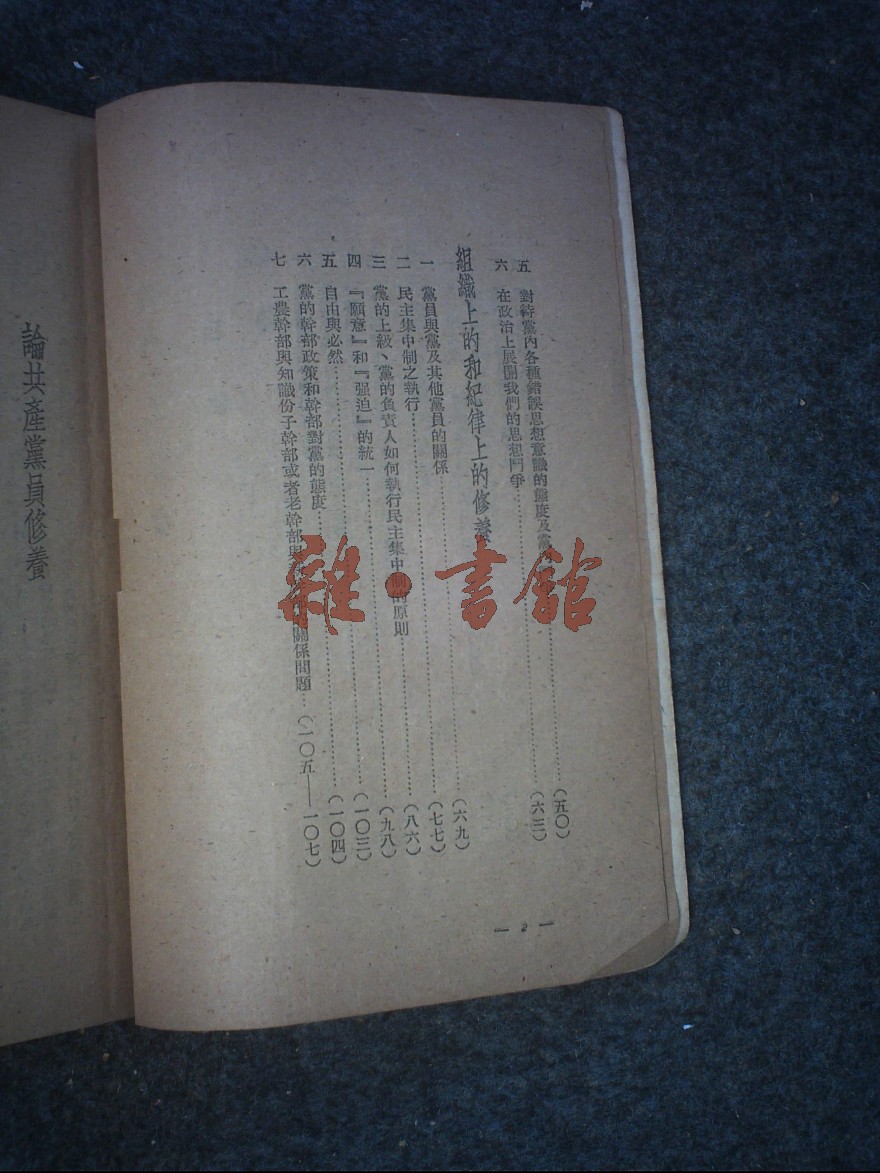 五 對待黨內各種錯誤思想意識的態度及黨……(五〇)
六 在政治上展開我們的思想鬥爭……(六三)
組織上的和紀律上的修養
一 黨員與黨及其他黨員的關係……(六九)
二 民主集中制之執行……(七七)
三 黨的上級、黨的負責人如何執行民主集中制的原則……(八六)
四 『願意』和『强迫』的統一……(九八)
五 自由與必然……(一〇三)
六 黨的幹部政策和幹部對黨的態度……(一〇四)
七 工農幹部與知識份子幹部或者老幹部與關係問題……(一〇五——一〇七)
— 2 —
論共產黨員修養
雜·書館